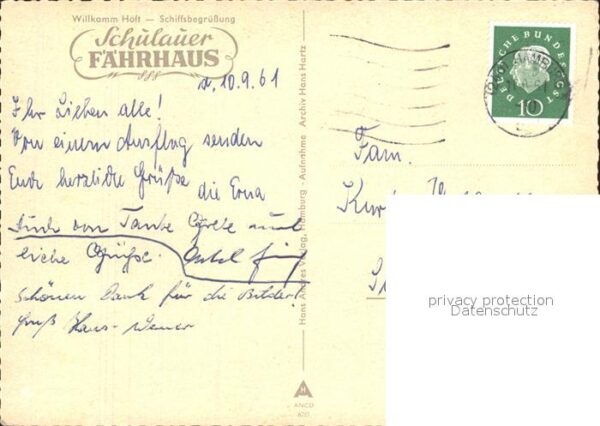 Willkomm Höft — Schiffsbegrüßung
Schulauer
FÄHRHAUS
10.9.61
Ihr Lieben alle!
Von einem Ausflug senden
Euch herzliche Grüße
die Erna
Auch von Tante Grete
liche Grüße. Onkel
Schönen Dank für die Bilder!
Gruß Hans-Werner
Hans Andres Verlag, Hamburg - Aufnahme Archiv Hans Hartz
ANCO
DEUTSCHE BUNDESPOST
10
HAMBURG
Fam.
Kurt
privacy protection
Datenschutz